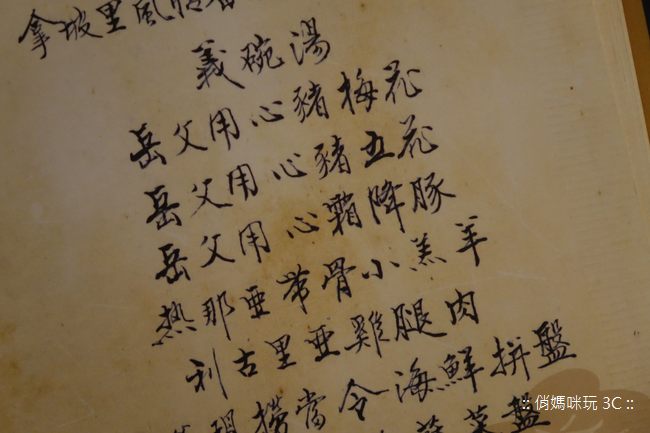 拿坡里風情
義碗湯
岳父用心豬梅花
岳父用心豬五花
岳父用心霜降豚
热那亚带骨小羔羊
利古里亞雞腿肉
現撈當令海鮮拼盤
菜盤
:: 俏媽咪玩 3C ::